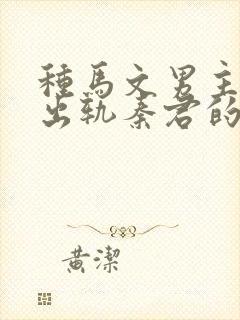 種馬文男主
出軌秦君的
黃潔